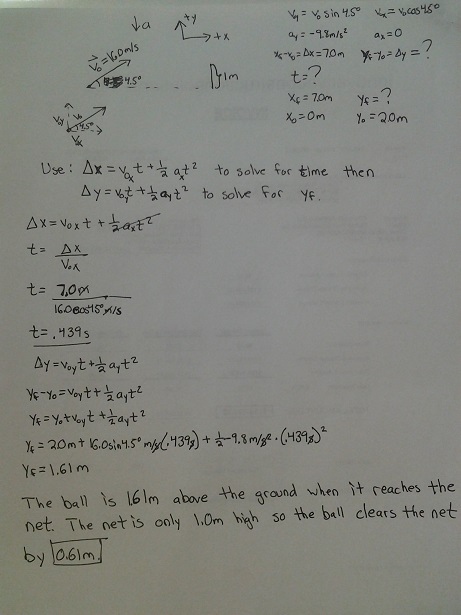 ↓a
+y
+x
Vy = Vo sin 4.5° Vx = Vo cos 4.5°
ay = -9.8m/s² ax = 0
xf-xo = Δx = 7.0m yf-yo = Δy = ?
t = ?
xf = 7.0m yf = ?
xo = 0m yo = 2.0m
4.5°
}1m
Voy Vo
4.5°
Vx
Use: Δx = voxt + ½ axt² to solve for time then
Δy = voyt + ½ ayt² to solve for yf.
Δx = voxt + ½axt²
t = Δx / Vox
t = 7.0m / 16.0cos4.5° m/s
t = .439s
Δy = voyt + ½ ayt²
yf-yo = voyt + ½ ayt²
yf = yo + voyt + ½ ayt²
yf = 2.0m + 16.0sin4.5° m/s(.439s) + ½ -9.8m/s² · (.439s)²
yf = 1.61 m
The ball is 1.61m above the ground when it reaches the
net. The net is only 1.0m high so the ball clears the net
by 0.61m.